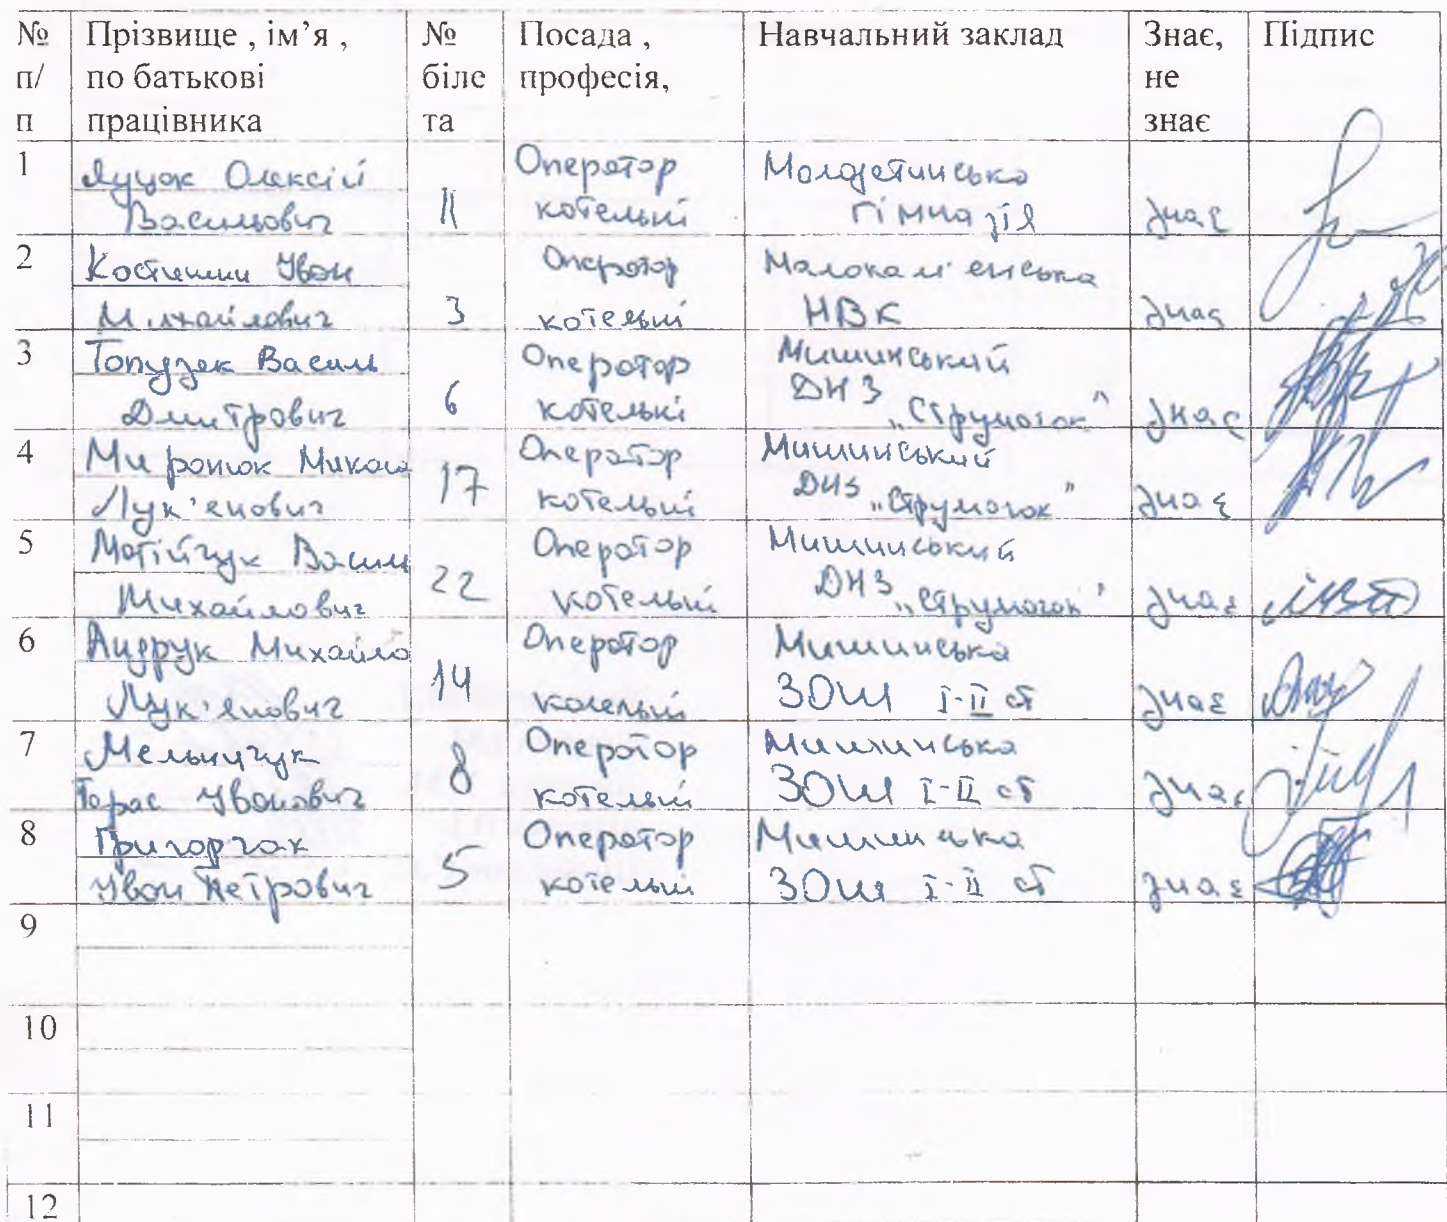 № п/п Прізвище , ім’я , по батькові працівника № біле та Посада , професія, Навчальний заклад Знає, не знає Підпис
1 Луцок Олексій Васильович 11 Оператор котельні гімназія знає
2 Іван Михайлович 3 Оператор котельні Малокам'янська НВК знає
3 Василь Дмитрович 6 Оператор котельні Мишинський ДНЗ „Струмочок" знає
4 Миронюк Микола Лук'янович 17 Оператор котельні Мишинський ДНЗ „Струмочок" знає
5 Матійчук Василь Михайлович 22 Оператор котельні Мишинський ДНЗ „Струмочок" знає
6 Андрук Михайло Лук'янович 14 Оператор котельні Мишинська ЗОШ І-ІІ ст знає
7 Мельничук Тарас Іванович 8 Оператор котельні Мишинська ЗОШ І-ІІ ст знає
8 Григорчак Іван Петрович 5 Оператор котельні Мишинська ЗОШ І-ІІ ст знає
9
10
11
12